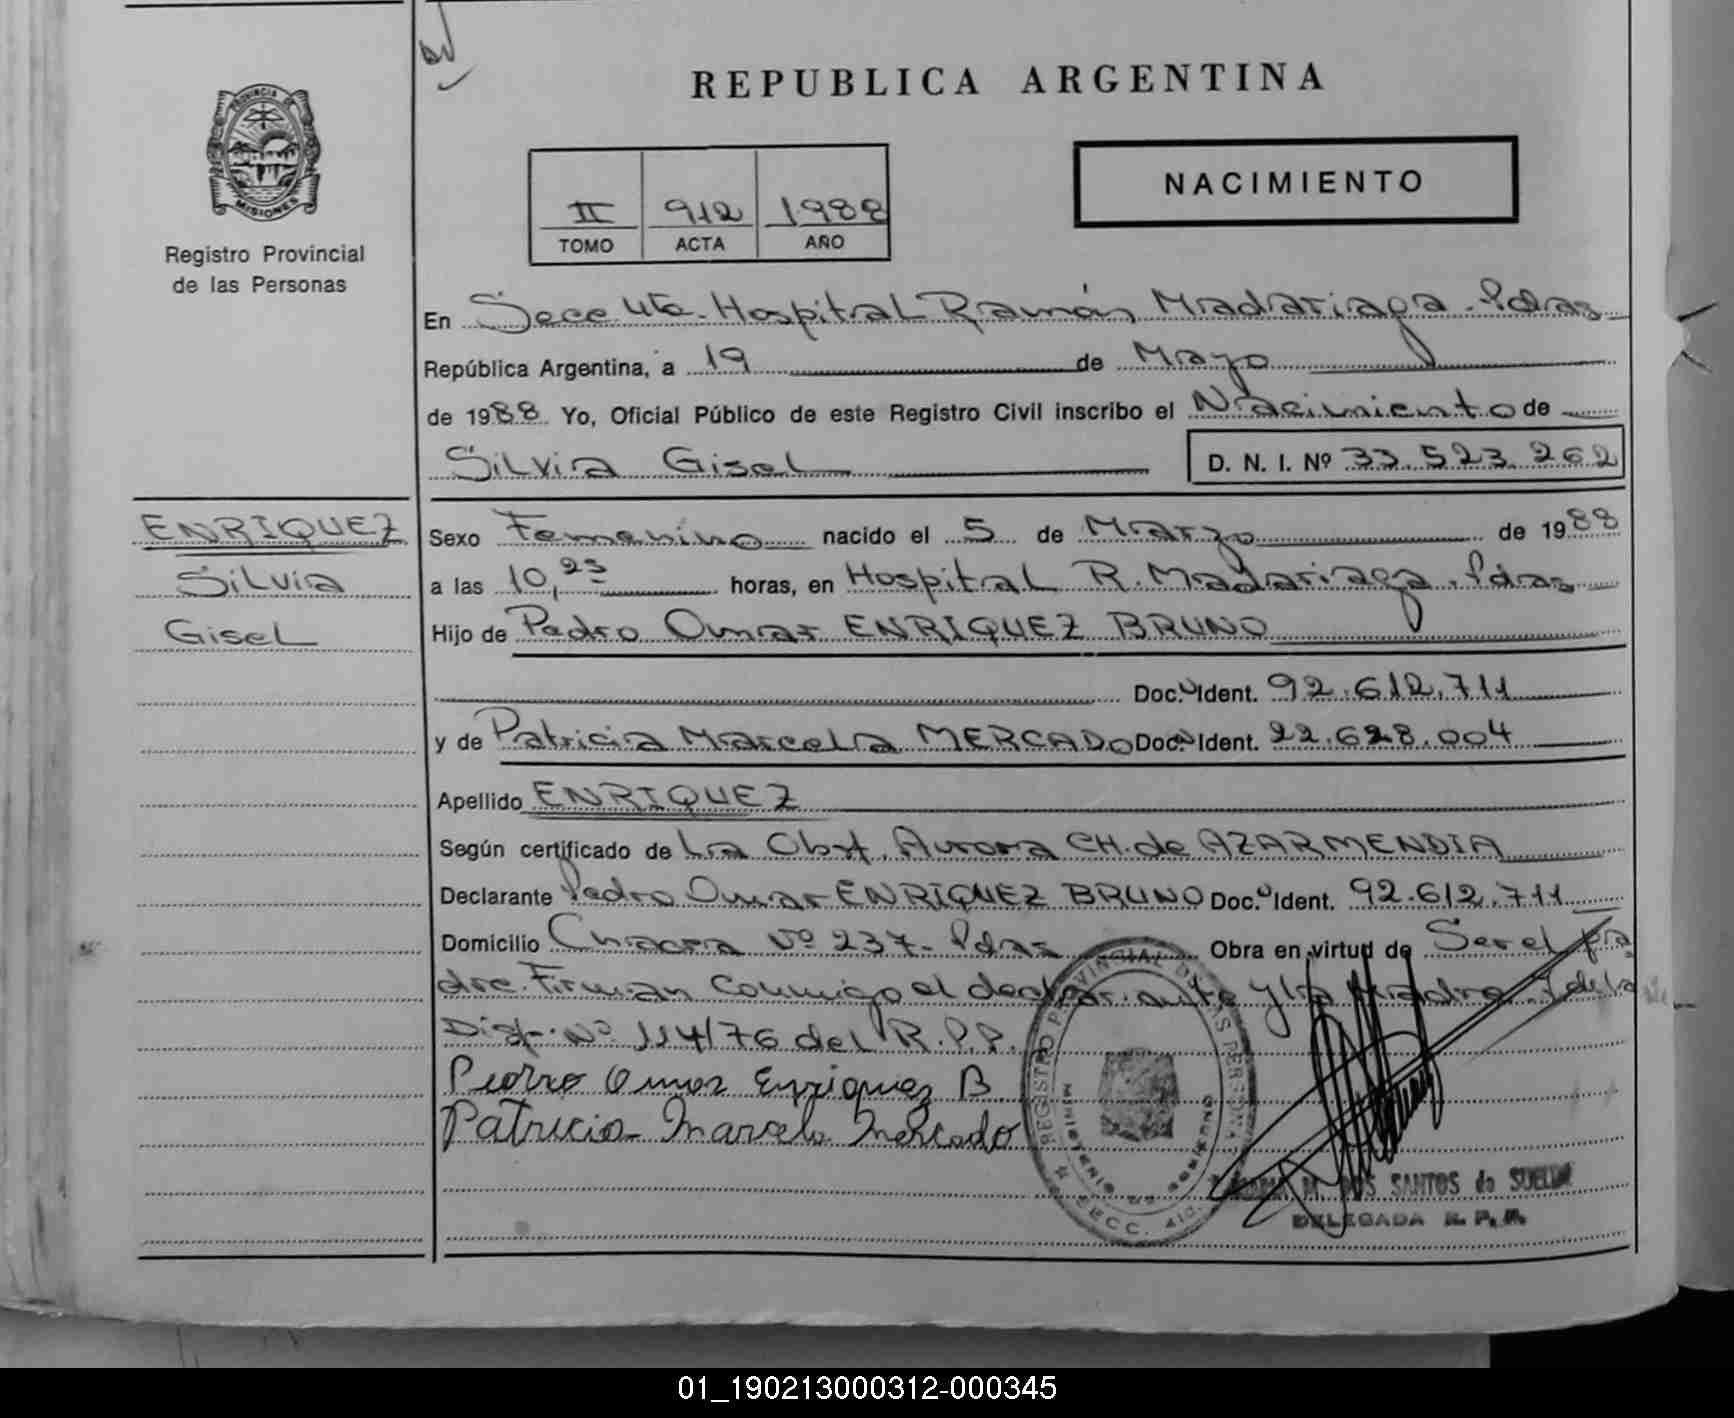 REPUBLICA ARGENTINA
PROVINCIA DE
MISIONES
Registro Provincial
de las Personas
II 912 1988
TOMO ACTA AÑO
NACIMIENTO
En Secc 4ta. Hospital Ramón Madariaga. Pdas
República Argentina, a 19 de Mayo
de 1988 Yo, Oficial Público de este Registro Civil inscribo el Nacimiento de
Silvia Gisel D. N. I. Nº 33.523.262
ENRIQUEZ
Silvia
Gisel
Sexo Femenino nacido el 5 de Marzo de 1988
a las 10,25 horas, en Hospital R. Madariaga. Pdas
Hijo de Pedro Omar ENRIQUEZ BRUNO
Doc. Ident. 92.612.711
y de Patricia Marcela MERCADO Doc. Ident. 22.628.004
Apellido ENRIQUEZ
Según certificado de La Obst. Aurora CH. de AZARMENDIA
Declarante Pedro Omar ENRIQUEZ BRUNO Doc. Ident. 92.612.711
Domicilio Chacra Nº 237- Pdas Obra en virtud de Ser el pa
dre. Firman conmigo el declarante y la Madre.
Disp. Nº 114/76 del R.P.P.
Pedro Omar Enriquez B
Patricia Marcela Mercado
REGISTRO PROVINCIAL DE LAS PERSONAS
MINISTERIO DE GOBIERNO
M. DOS SANTOS de
DELEGADA R. P. P.
01_190213000312-000345